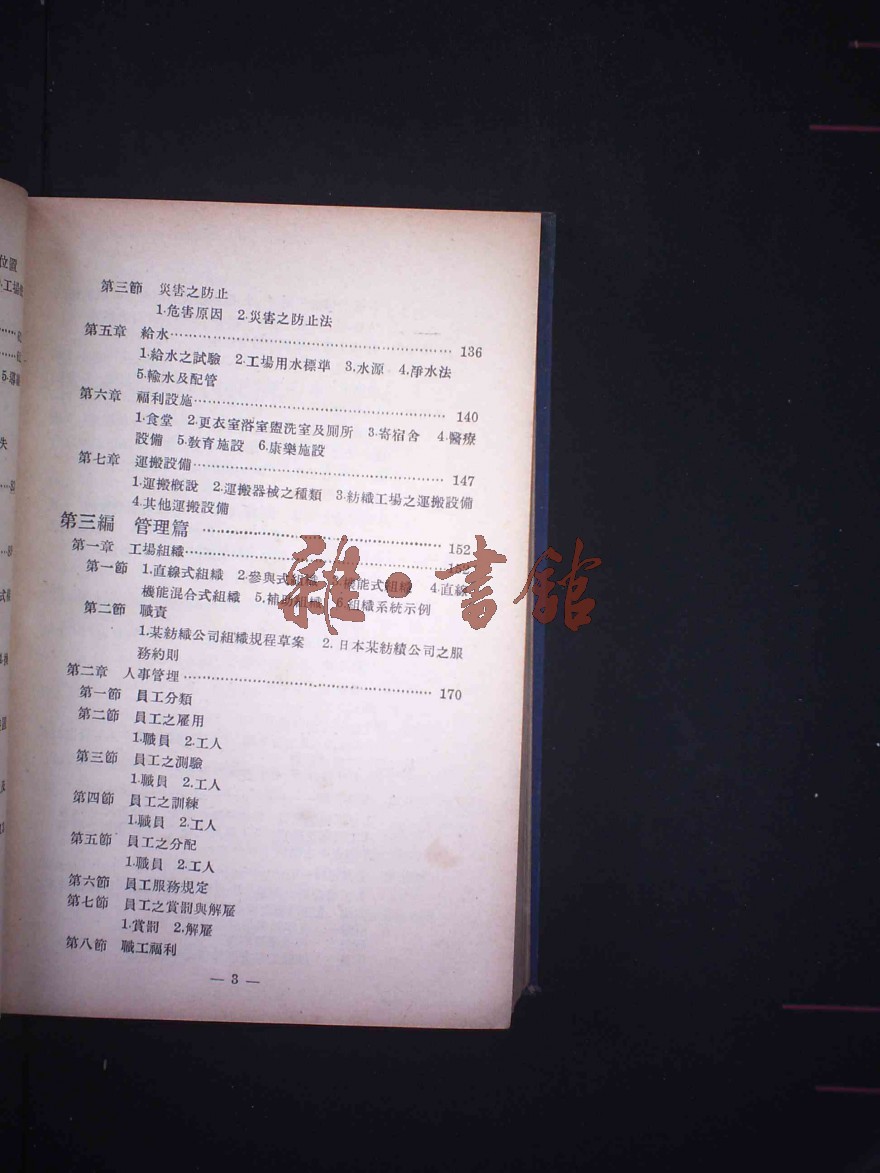 第三節 災害之防止
1.危害原因 2.災害之防止法
第五章 給水 136
1.給水之試驗 2.工場用水標準 3.水源 4.淨水法
5.輸水及配管
第六章 福利設施 140
1.食堂 2.更衣室浴室盥洗室及厠所 3.寄宿舍 4.醫療
設備 5.敎育施設 6.康樂施設
第七章 運搬設備 147
1.運搬概說 2.運搬器械之種類 3.紡織工場之運搬設備
4.其他運搬設備
第三編 管理篇 152
第一章 工場組織 152
第一節 1.直線式組織 2.參與式組織 3.機能式組織 4.直線
機能混合式組織 5.補助組織 6.組織系統示例
第二節 職責
1.某紡織公司組織規程草案 2.日本某紡績公司之服
務約則
第二章 人事管埋 170
第一節 員工分類
第二節 員工之雇用
1.職員 2.工人
第三節 員工之測驗
1.職員 2.工人
第四節 員工之訓練
1.職員 2.工人
第五節 員工之分配
1.職員 2.工人
第六節 員工服務規定
第七節 員工之賞罰與解雇
1.賞罰 2.解雇
第八節 職工福利
— 3 —
雜·書館
位置
失